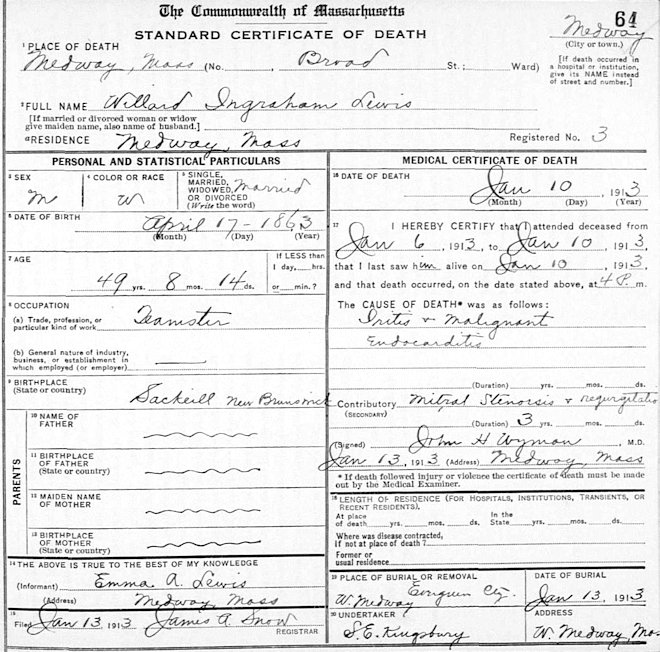 The Commonwealth of Massachusetts
64
STANDARD CERTIFICATE OF DEATH
Medway
(City or town.)
1 PLACE OF DEATH
Medway, Mass (No. , Broad St.; Ward)
[If death occurred in a hospital or institution, give its NAME instead of street and number.]
2 FULL NAME Willard Ingraham Lewis
[If married or divorced woman or widow
give maiden name, also name of husband.]
a RESIDENCE Medway, Mass
Registered No. 3
PERSONAL AND STATISTICAL PARTICULARS
3 SEX
M
4 COLOR OR RACE
W
5 SINGLE,
MARRIED,
WIDOWED,
OR DIVORCED
(Write the word)
Married
6 DATE OF BIRTH
April 17 - 1863
(Month) (Day) (Year)
7 AGE
49 yrs. 8 mos. 14 ds.
If LESS than
1 day, hrs.
or min.?
8 OCCUPATION
(a) Trade, profession, or
particular kind of work
Teamster
(b) General nature of industry,
business, or establishment in
which employed (or employer)
9 BIRTHPLACE
(State or country)
Sackvill New Brunswick
PARENTS
10 NAME OF
FATHER
11 BIRTHPLACE
OF FATHER
(State or country)
12 MAIDEN NAME
OF MOTHER
13 BIRTHPLACE
OF MOTHER
(State or country)
14 THE ABOVE IS TRUE TO THE BEST OF MY KNOWLEDGE
(Informant) Emma A. Lewis
(Address) Medway, Mass
15
Filed Jan 13, 1913 James A. Snow
REGISTRAR
MEDICAL CERTIFICATE OF DEATH
16 DATE OF DEATH
Jan 10 , 1913
(Month) (Day) (Year)
17 I HEREBY CERTIFY that I attended deceased from
Jan 6, 1913, to Jan 10, 1913,
that I last saw him alive on Jan 10, 1913,
and that death occurred, on the date stated above, at 4 P. m.
The CAUSE OF DEATH* was as follows:
Iritis & Malignant
Endocarditis
(Duration) yrs. mos. ds.
Contributory Mitral Stenosis & regurgitatio
(SECONDARY)
(Duration) 3 yrs. mos. ds.
(Signed) John H Wyman, M.D.
Jan 13, 1913 (Address) Medway, Mass
* If death followed injury or violence the certificate of death must be made
out by the Medical Examiner.
18 LENGTH OF RESIDENCE (FOR HOSPITALS, INSTITUTIONS, TRANSIENTS, OR
RECENT RESIDENTS).
At place of death yrs. mos. ds. In the State yrs. mos. ds.
Where was disease contracted,
If not at place of death?
Former or
usual residence
19 PLACE OF BURIAL OR REMOVAL
Evergreen Cty.
W. Medway
DATE OF BURIAL
Jan 13, 1913
20 UNDERTAKER
S. E. Kingsbury
ADDRESS
W. Medway, Mas